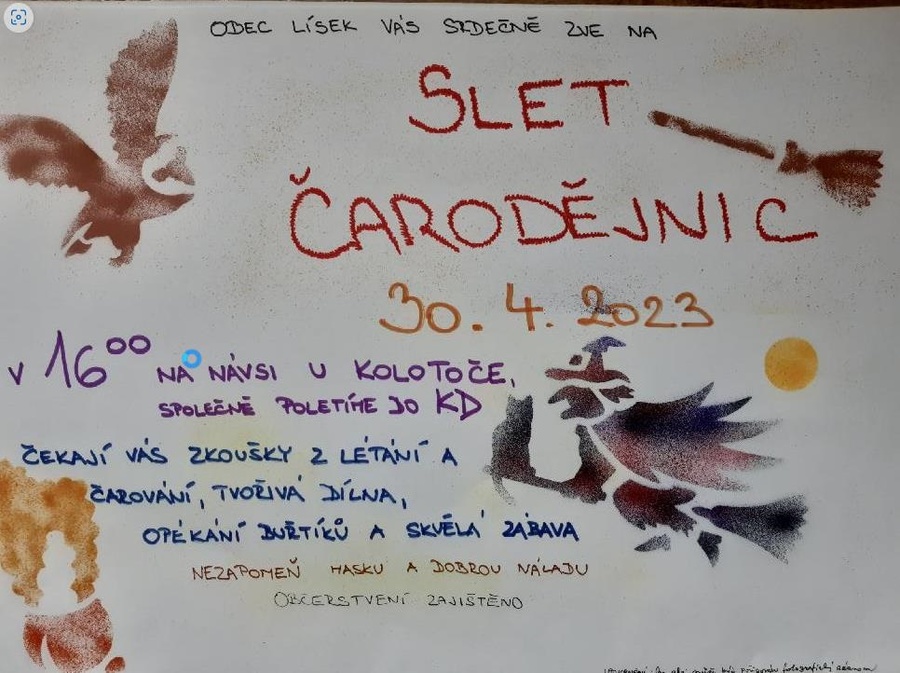 OBEC LÍSEK VÁS SRDEČNĚ ZVE NA
SLET
ČARODĚJNIC
30. 4. 2023
V 16⁰⁰ NA NÁVSI U KOLOTOČE,
SPOLEČNĚ POLETÍME DO KD
ČEKAJÍ VÁS ZKOUŠKY Z LÉTÁNÍ A
ČAROVÁNÍ, TVOŘIVÁ DÍLNA,
OPÉKÁNÍ BUŘTÍKŮ A SKVĚLÁ ZÁBAVA
NEZAPOMEŇ MASKU A DOBROU NÁLADU
OBČERSTVENÍ ZAJIŠTĚNO